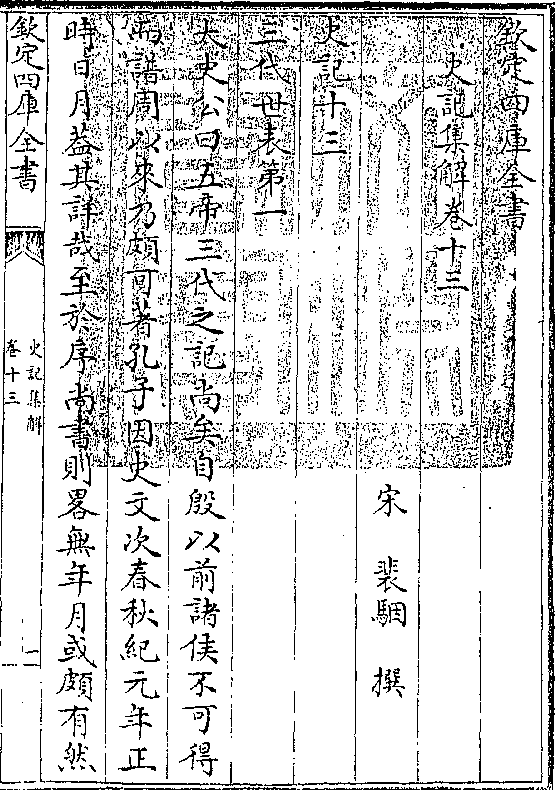 欽定四庫全書
史記集解卷十三
宋 裴駰 撰
史記十三
三代世表第一
太史公曰五帝三代之記尚矣自殷以前諸侯不可得
而譜周以來乃頗可著孔子因史文次春秋紀元年正
時日月葢其詳哉至於序尚書則畧無年月或頗有然
欽定四庫全書
史記集解
卷十三
一